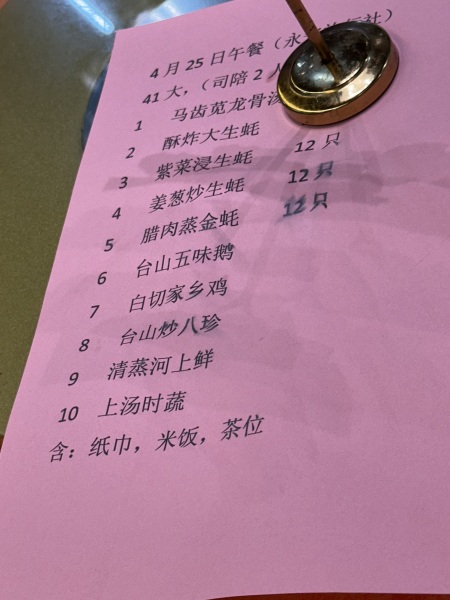 4月25日午餐（永 社）
41大，（司陪2人
1 马齿苋龙骨汤
2 酥炸大生蚝
3 紫菜浸生蚝 12只
4 姜葱炒生蚝 12只
5 腊肉蒸金蚝 12只
6 台山五味鹅
7 白切家乡鸡
8 台山炒八珍
9 清蒸河上鲜
10 上汤时蔬
含：纸巾，米饭，茶位